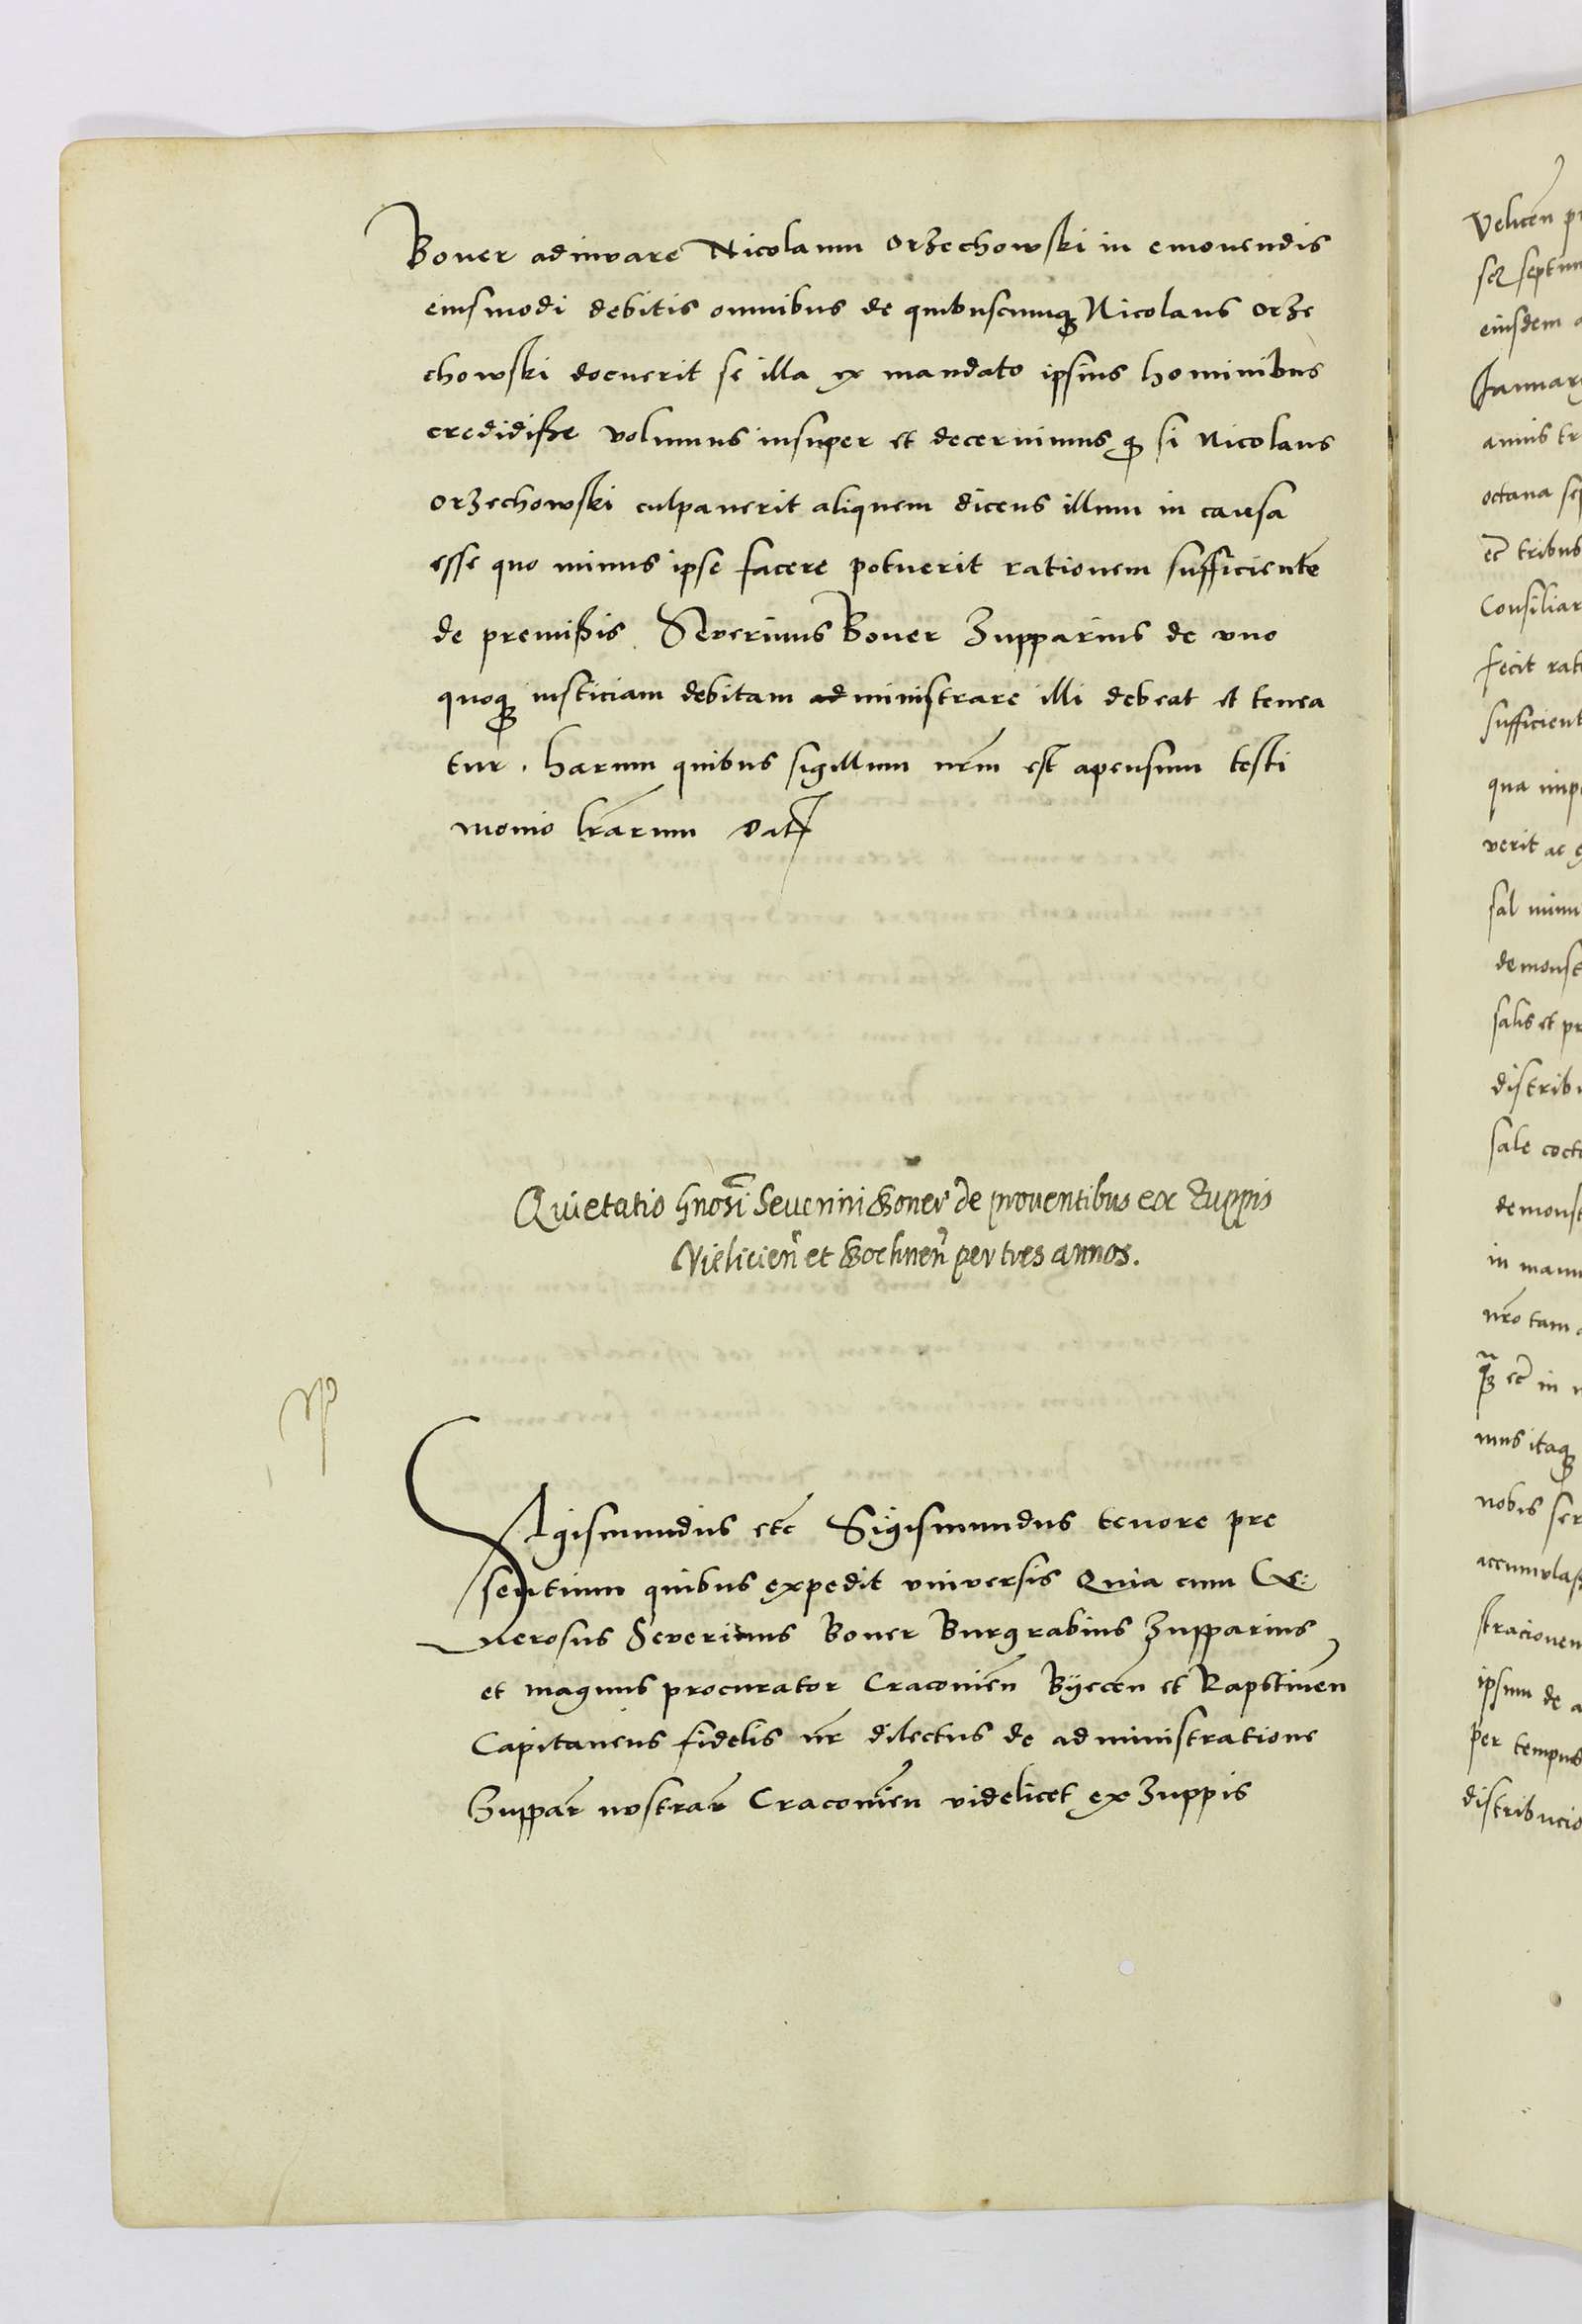 Boner adiuvare Nicolaum Orzechowski in emonendis
eiusmodi debitis omnibus de quibuscumq Nicolaus Orze
chowski docuerit se illa ex mandato ipsius hominibus
credidisse volumus insuper et decernimus q si Nicolaus
Orzechowski culpaverit aliquem dicens illum in causa
esse quo minus ipse facere potuerit rationem sufficientē
de premissis. Severinus Boner Zupparius de vno
quoq iusticiam debitam administrare illi debeat et tenea
tur. harum quibus sigillum nrm est apensum testi
monio lrarum Dat
Quietatio Gnosi Seuerini Boner de prouentibus ex Zuppis
Vielicien et Bochnen per tres annos.
Sigismundus etc Sigismundus tenore pre
sentium quibus expedit vniversis Quia cum Ge:
nerosus Severinus Boner Burgrabius Zupparius
et magnus procurator Craconien Byecen et Rapstinen
Capitaneus fidelis nr dilectus de administratione
Zuppar nostrar Craconien videlicet ex Zuppis
Velicen
septim
eiusdem
Januar
annis tr
octava
ec tribus
Consiliar
fecit rat
sufficient
qua imp
verit ac
sal minu
demonst
salis et pr
distrib
sale coct
demonst
in manu
nro tam
ec in
mus itaq
nobis ser
accumulas
stracionem
ipsum de a
per tempus
distribucio